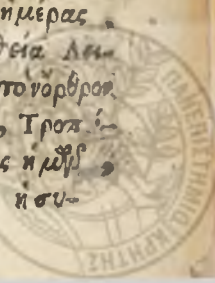 ημέρας,
θεία Λει-
τον ορθρον
, Τροπ.
ς η μβ,
η συ-
ΠΑΝΕΠΙΣΤΗΜΙΟ ΚΡΗΤΗΣ